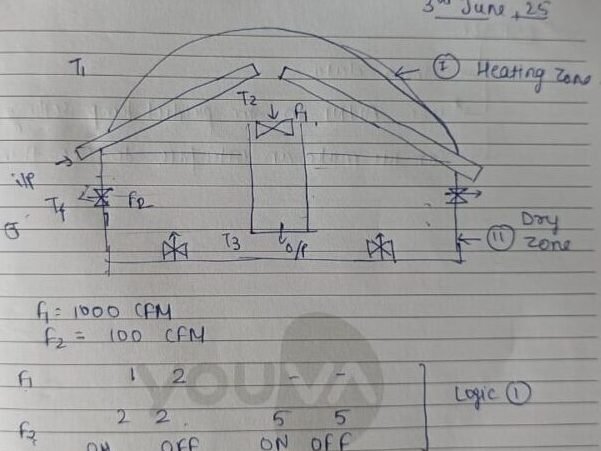 3rd June, 25
T1
I Heating Zone
T2
f1
i/p
T4
F2
T3
O/P
II Dry Zone
f1 = 1000 CFM
f2 = 100 CFM
f1 1 2 - -
Logic 1
f2 2 2 5 5
ON OFF ON OFF
YOUVA